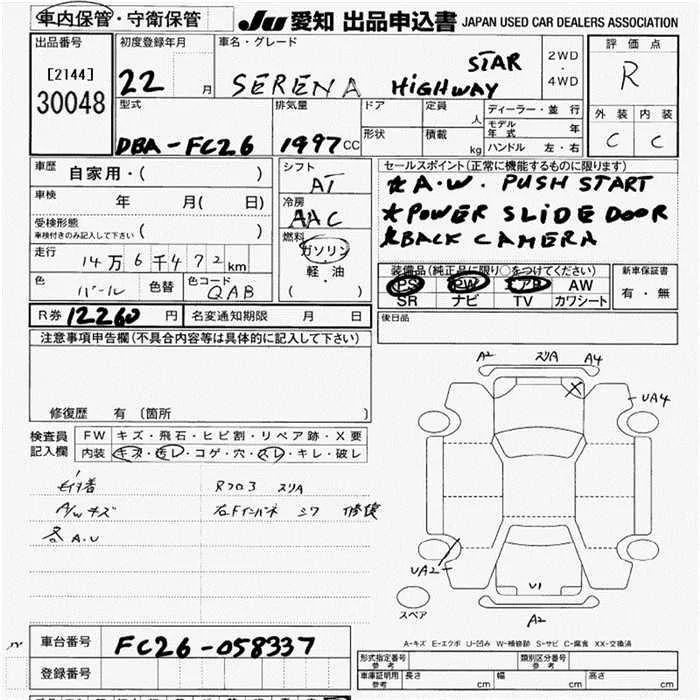 車内保管・守衛保管 JU 愛知 出品申込書 JAPAN USED CAR DEALERS ASSOCIATION
出品番号 初度登録年月 車名・グレード 評価点
[2144] 22 月 SERENA STAR HIGHWAY 2WD・4WD R
30048
型式 排気量 ドア 定員 人 ディーラー・並 行 外装 内装
DBA-FC26 1997 CC 形状 積載 kg モデル年式 年 C C
ハンドル 左・右
車歴 自家用・( ) シフト AT セールスポイント(正常に機能するものに限ります)
車検 年 月( 日) 冷房 AAC ★A.W. PUSH START
受検形態 車検付きのみ記入して下さい ( ) 燃料 ガソリン ★POWER SLIDE DOOR
走行 14万6千472km 軽・油 ★BACK CAMERA
色 パール 色替 色コード QAB ( )
装備品(純正品に限り○をつけてください) 新車保証書
PS PW エアB AW 有・無
SR ナビ TV カワシート
R券 12260 円 名変通知期限 月 日 後日品
注意事項申告欄(不具合内容等は具体的に記入して下さい)
修復歴 有 (箇所 )
A2 スリA A4
UA4
検査員記入欄 FW キズ・飛石・ヒビ割・リペア跡・X要
内装 キズ・汚レ・コゲ・穴・スレ・キレ・破レ
Rフロ3 スリA
A/Wキズ 右Fインパネ シワ 修復
各A.U
UA2 U1
スペア A2
A-キズ E-エクボ U-凹み W-補修跡 S-サビ C-腐食 XX-交換済
車台番号 FC26-058337
登録番号
形式指定番号 参考 類別区分番号 参考
車庫証明用 参考 長さ cm 幅 cm 高さ cm